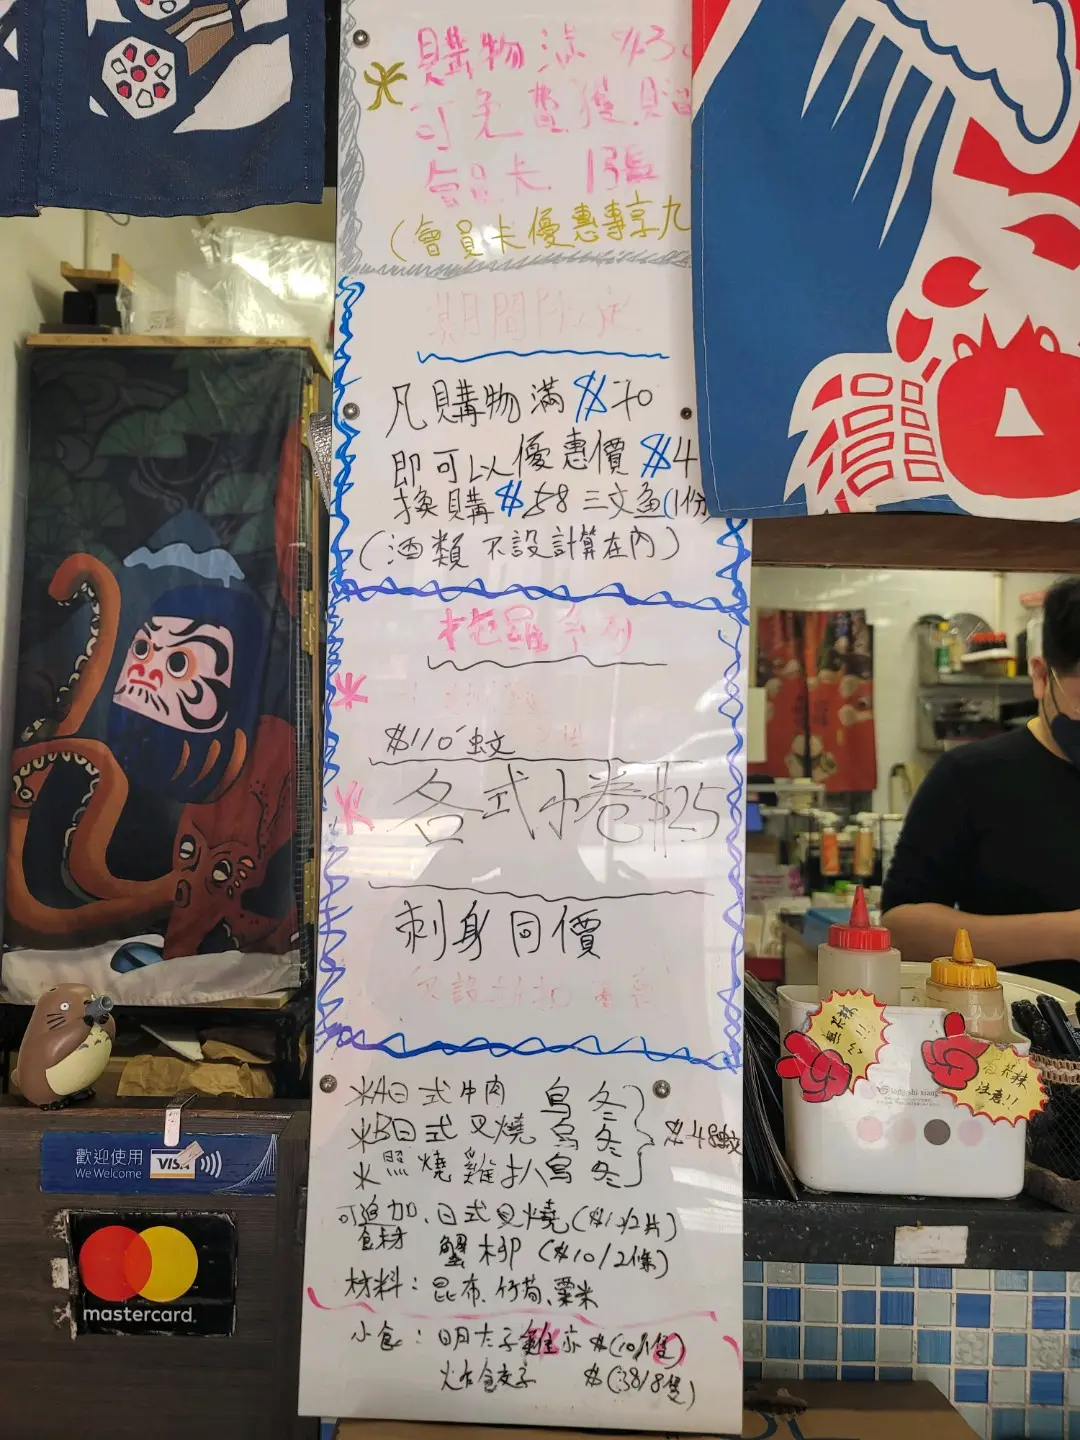 購物滿 $30
可免費獲贈
會員卡 1張
(會員卡優惠專享九
期間限定
凡購物滿$70
即可以優惠價$4
換購$58三文魚(1份)
(酒類不設計算在內)
拖羅系列
$110蚊
各式小卷$25
刺身同價
不設折扣
A日式牛肉 烏冬
B日式叉燒烏冬
照燒雞扒烏冬
$48蚊
可追加食材 日式叉燒($12/2片)
蟹柳 ($10/2條)
材料:昆布、竹荀、粟米
小食:明太子雞亦 $(10/1隻)
餃子 $(38/8隻)
歡迎使用
We Welcome
VISA
mastercard.
無辣
tong shi xiang
注意!!